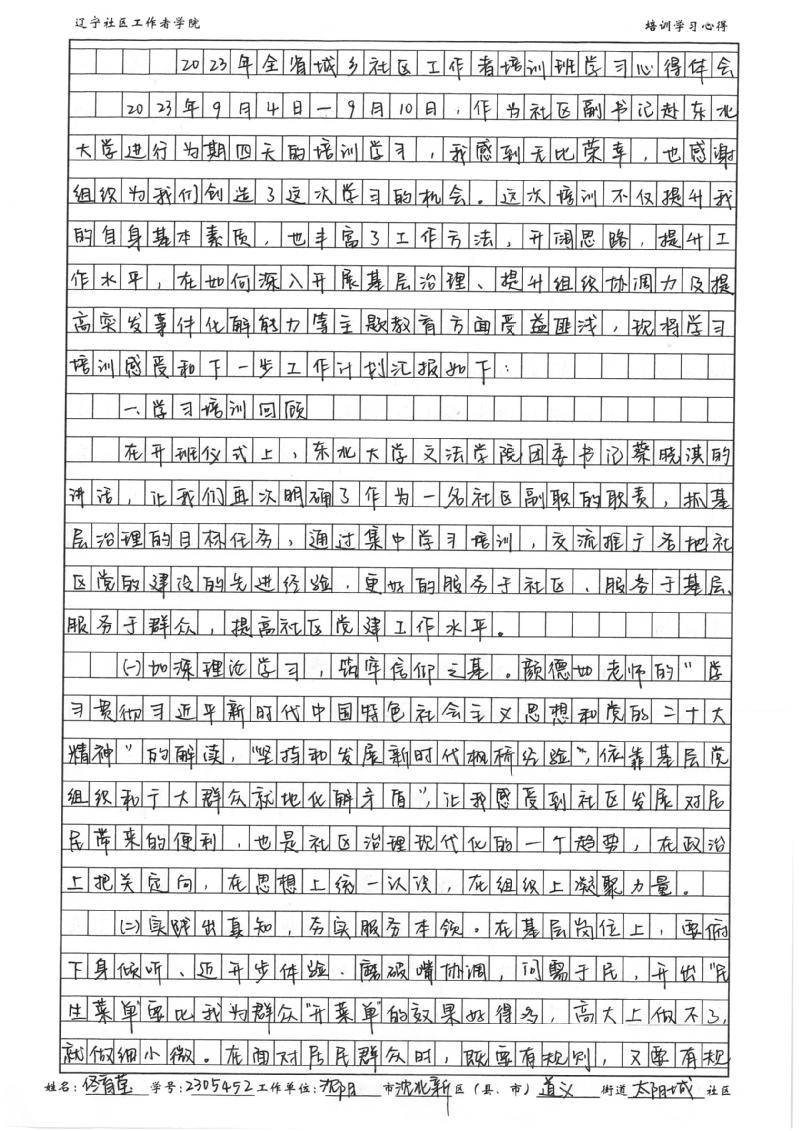 辽宁社区工作者学院 培训学习心得
2023年全省城乡社区工作者培训班学习心得体会
2023年9月4日—9月10日，作为社区副书记赴东北
大学进行为期四天的培训学习，我感到无比荣幸，也感谢
组织为我们创造了这次学习的机会。这次培训不仅提升我
的自身基本素质，也丰富了工作方法，开阔思路，提升工
作水平，在如何深入开展基层治理、提升组织协调力及提
高突发事件化解能力等主题教育方面受益匪浅，现将学习
培训感受和下一步工作计划汇报如下：
一、学习培训回顾
在开班仪式上，东北大学文法学院团委书记蔡晓淇的
讲话，让我们再次明确了作为一名社区副职的职责，抓基
层治理的目标任务，通过集中学习培训，交流推广各地社
区党的建设的先进经验，更好的服务于社区、服务于基层、
服务于群众，提高社区党建工作水平。
(一)加深理论学习，筑牢信仰之基。颜德如老师的“学
习贯彻习近平新时代中国特色社会主义思想和党的二十大
精神”的解读，“坚持和发展新时代枫桥经验”，“依靠基层党
组织和广大群众就地化解矛盾”，让我感受到社区发展对居
民带来的便利，也是社区治理现代化的一个趋势，在政治
上把关定向，在思想上统一认识，在组织上凝聚力量。
(二)实践出真知，夯实服务本领。在基层岗位上，要俯
下身倾听、迈开步体验、磨破嘴协调，问需于民，开出“民
生菜单”要比我为群众“开菜单”的效果好得多，高大上做不了，
就做细小微。在面对居民群众时，既要有规则，又要有规
姓名：佟育莹 学号：2305452 工作单位：沈阳 市 沈北新 区（县、市） 道义 街道 太阳城 社区